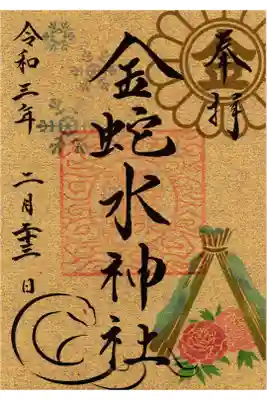 奉拝
金蛇水神社
令和三年 二月二十三日